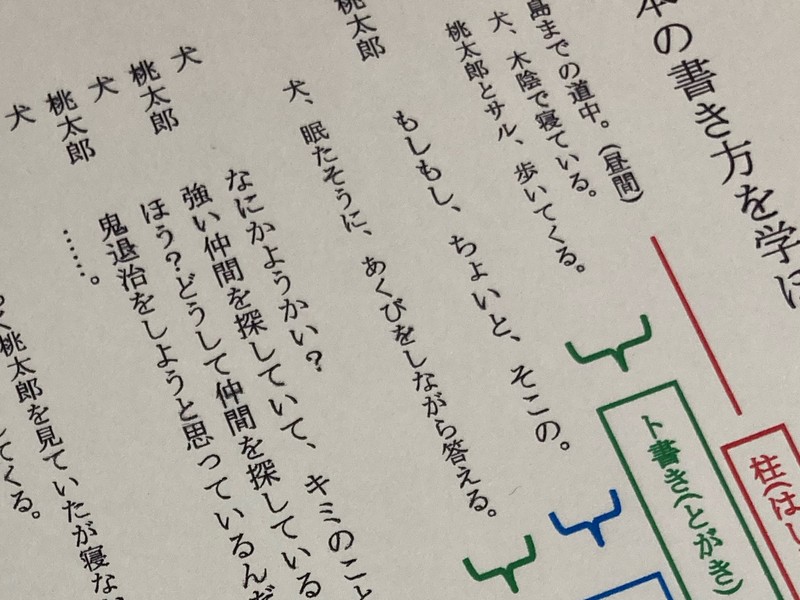 本の書き方を学
島までの道中。（昼間）
犬、木陰で寝ている。
桃太郎とサル、歩いてくる。
桃太郎
もしもし、ちょいと、そこの。
犬、眠たそうに、あくびをしながら答える。
犬
なにかようかい？
桃太郎
強い仲間を探していて、キミのこと
犬
ほう？どうして仲間を探している
桃太郎
鬼退治をしようと思っているんだ
犬
……。
桃太郎を見ていたが寝な
てくる。
柱（はし
ト書き（とがき）